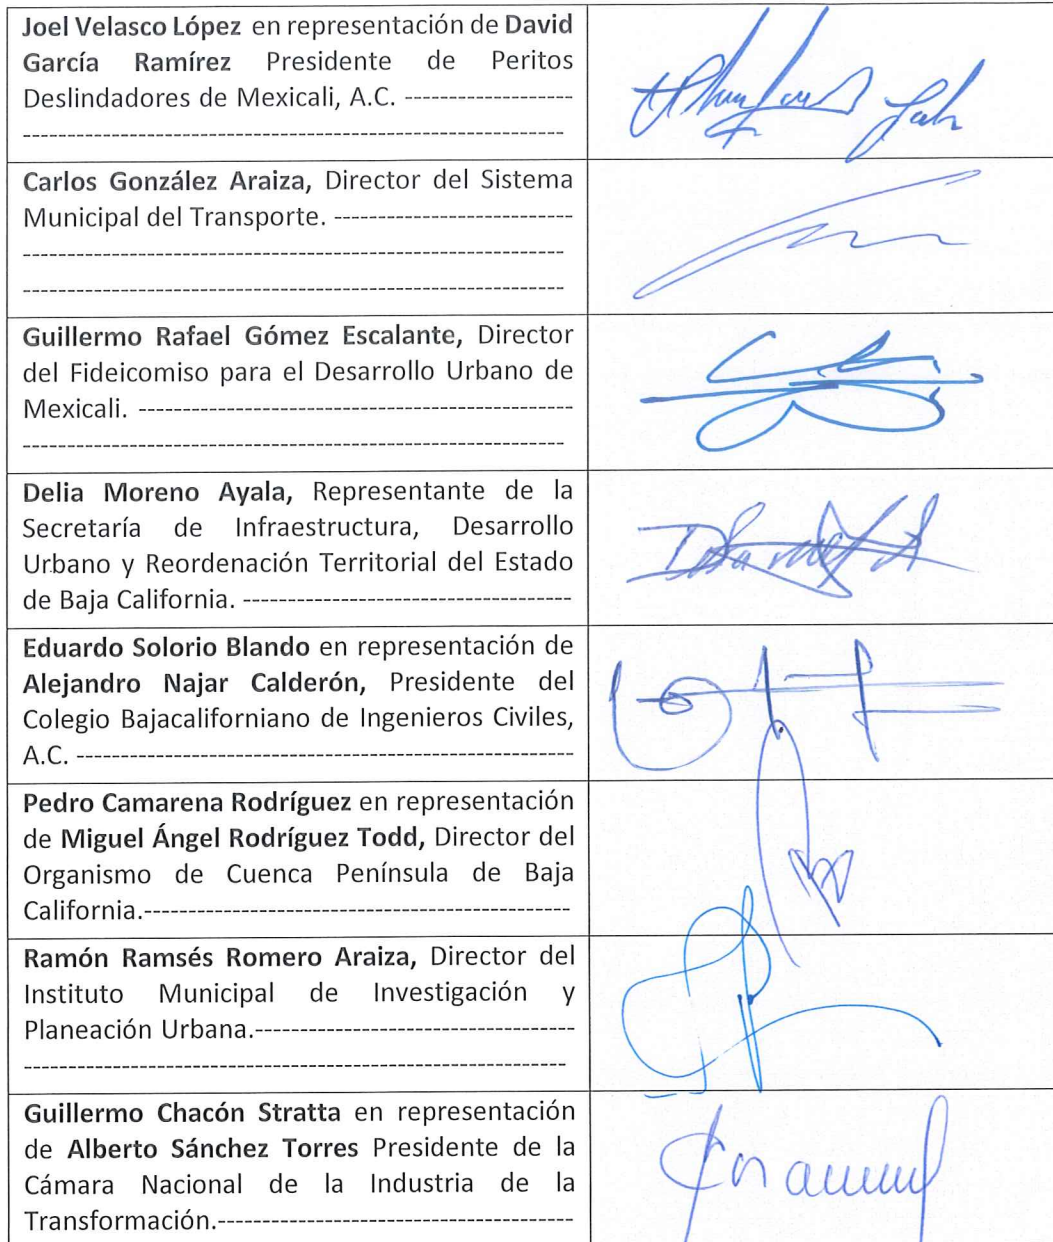 Joel Velasco López en representación de David
García Ramírez Presidente de Peritos
Deslindadores de Mexicali, A.C. -------------------
-------------------------------------------------------------
Carlos González Araiza, Director del Sistema
Municipal del Transporte. ---------------------------
-------------------------------------------------------------
-------------------------------------------------------------
Guillermo Rafael Gómez Escalante, Director
del Fideicomiso para el Desarrollo Urbano de
Mexicali. -------------------------------------------------
-------------------------------------------------------------
Delia Moreno Ayala, Representante de la
Secretaría de Infraestructura, Desarrollo
Urbano y Reordenación Territorial del Estado
de Baja California. -------------------------------------
Eduardo Solorio Blando en representación de
Alejandro Najar Calderón, Presidente del
Colegio Bajacaliforniano de Ingenieros Civiles,
A.C. --------------------------------------------------------
Pedro Camarena Rodríguez en representación
de Miguel Ángel Rodríguez Todd, Director del
Organismo de Cuenca Península de Baja
California.------------------------------------------------
Ramón Ramsés Romero Araiza, Director del
Instituto Municipal de Investigación y
Planeación Urbana.------------------------------------
-------------------------------------------------------------
Guillermo Chacón Stratta en representación
de Alberto Sánchez Torres Presidente de la
Cámara Nacional de la Industria de la
Transformación.----------------------------------------